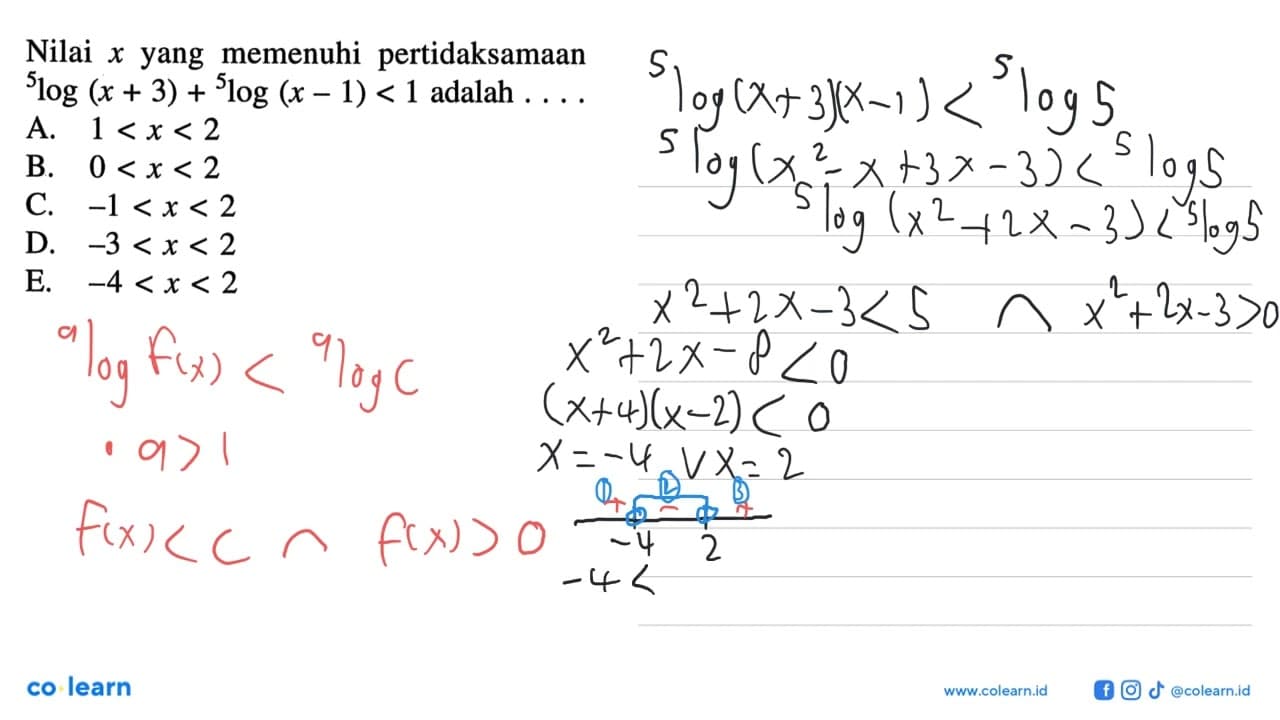 Nilai x yang memenuhi pertidaksamaan
⁵log (x + 3) + ⁵log (x – 1) < 1 adalah . . . .
A. 1 < x < 2
B. 0 < x < 2
C. –1 < x < 2
D. –3 < x < 2
E. –4 < x < 2
ᵃlog f(x) < ᵃlog c
• a > 1
f(x) < c ∩ f(x) > 0
⁵log(x+3)(x-1) < ⁵log 5
⁵log(x²-x+3x-3) < ⁵log5
⁵log (x²+2x-3) < ⁵log5
x²+2x-3<5 ∩ x²+2x-3>0
x²+2x-8<0
(x+4)(x-2)<0
x=-4 ∨ x=2
① ② ③
+ - +
-4 2
-4 <
co learn
www.colearn.id
@colearn.id